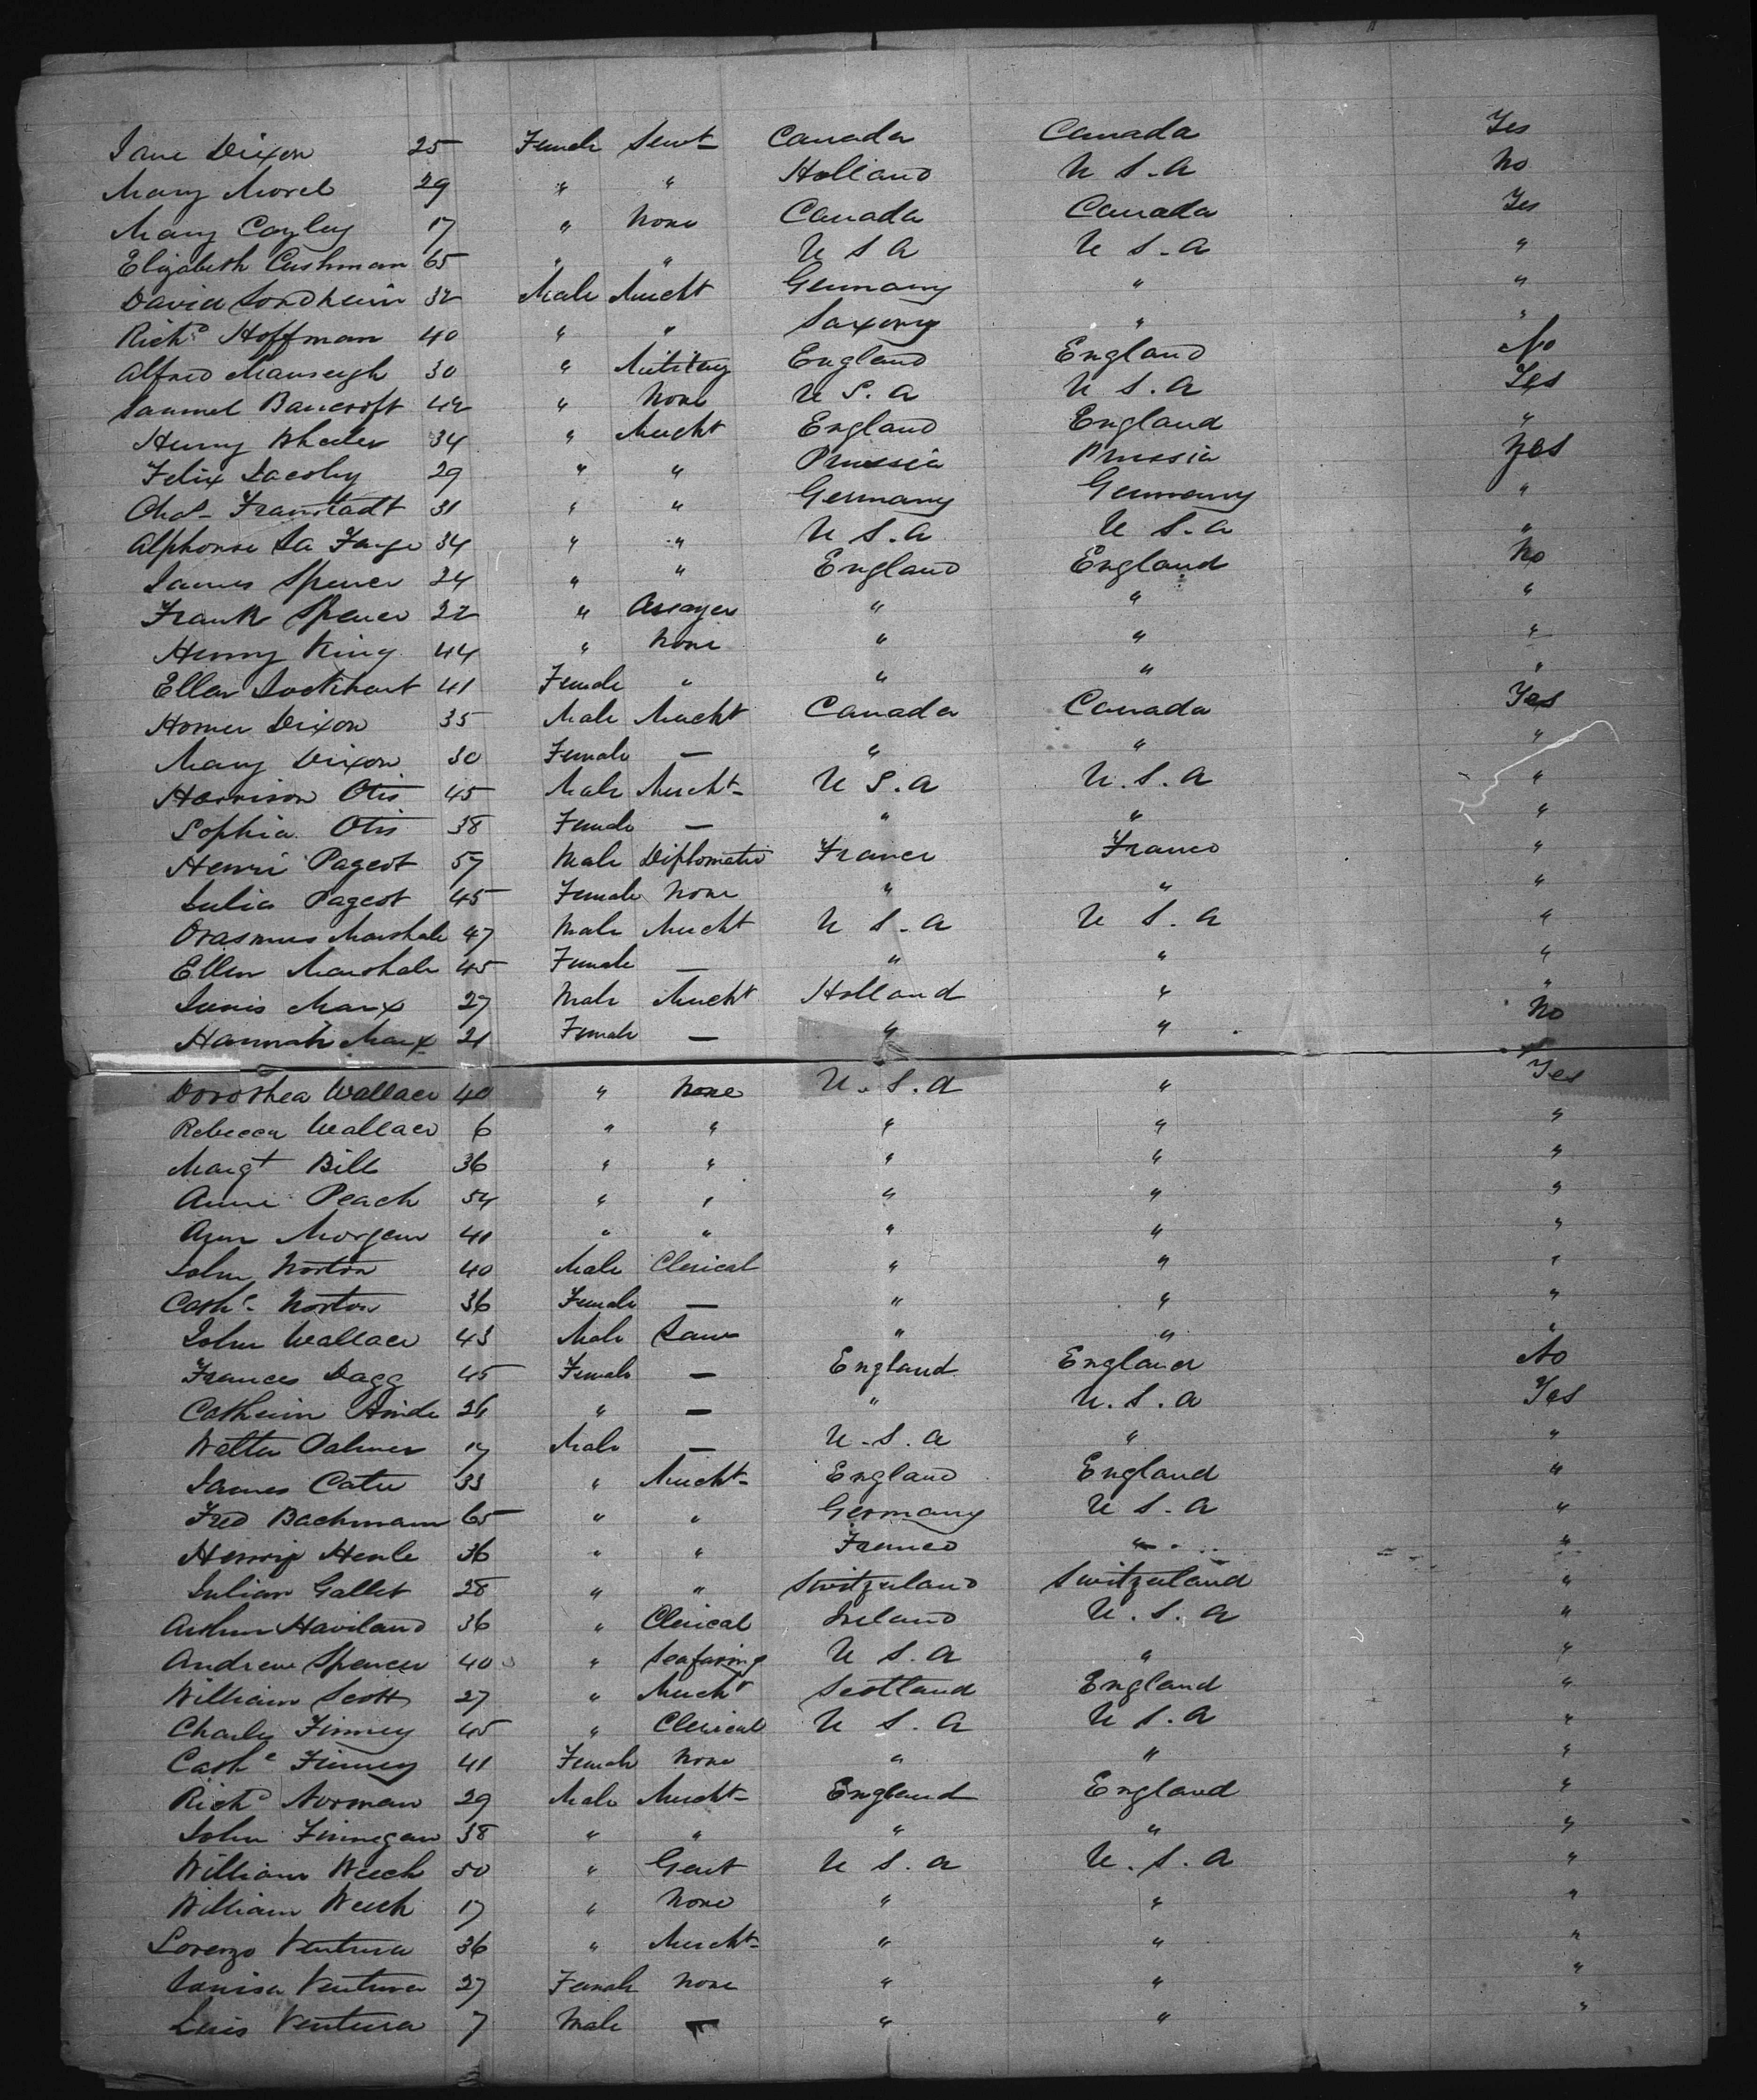 Jane Dixon 25 Female Servt Canada Canada Yes
Mary Morel 29 " " Holland U S. A No
Mary Cayley 17 " None Canada Canada Yes
Elizabeth Cushman 65 " " U S A U S. A "
David Sondheim 32 Male Mercht Germany " "
Richd Hoffman 40 " " Saxony " "
Alfred 30 " Military England England No
Samuel Bancroft 42 " None U S. A U S. A Yes
Henry Wheeler 34 " Mercht England England "
Felix Jacoby 29 " " Prussia Prussia Yes
Chas. Fraustadt 31 " " Germany Germany "
Alphonse La Farge 34 " " U S. A U S. A "
James Spencer 24 " " England England No
Frank Spencer 22 " Assayer " " "
Henry King 44 " None " " "
Ellen Lockhart 41 Female " " " "
Homer Dixon 35 Male Mercht Canada Canada Yes
Mary Dixon 30 Female — " " "
Harrison Otis 45 Male Mercht- U S. A U. S. A "
Sophia Otis 38 Female — " " "
Henri Pageot 57 Male Diplomatic France France "
Julia Pageot 45 Female None " " "
Orasmus Marshale 47 Male Mercht U S. A U S. A "
Ellen Marshale 45 Female — " " "
Marx 27 Male Mercht Holland " "
Hannah Marx 21 Female — " " No
Dorothea Wallace 40 " None U. S. A " Yes
Rebecca Wallace 6 " " " " "
Margt Bill 36 " " " " "
Anne Peach 54 " " " " "
Ann Morgan 40 " " " " "
John Norton 40 Male Clerical " " "
Cathe- Norton 36 Female — " " "
John Wallace 43 Male Law " " "
Frances Dagg 45 Female — England England No
Catherin Hinde 26 " — " U. S. A Yes
Walter Palmer 17 Male — U. S. A " "
James Cater 33 " Mercht- England England "
Fred Bachmann 65 " " Germany U S. A "
Henle 36 " " France " "
Julian Gallet 28 " " Switzerland Switzerland "
Arthur Haviland 36 " Clerical Ireland U. S. A "
Andrew Spencer 40 " Seafaring U S. A " "
William Scott 27 " Mercht Scotland England "
Charles Finney 45 " Clerical U S. A U S. A "
Cathe Finney 41 Female None " " "
Richd Norman 29 Male Mercht- England England "
John Finnegan 38 " " " " "
William 50 " Gent U S. A U. S. A "
William 17 " None " " "
Lorenzo Ventura 36 " Mercht- " " "
Louisa Ventura 27 Female None " " "
Luis Ventura 7 Male — " " "